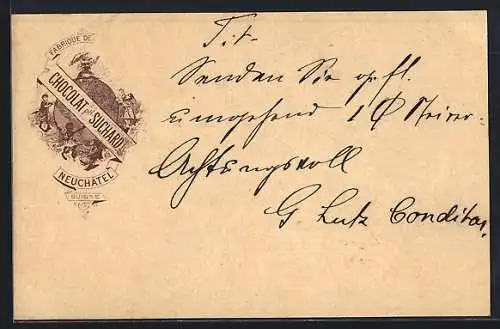 FABRIQUE DE
CHOCOLAT PH. SUCHARD
NEUCHÂTEL
SUISSE
Tit.
Senden Sie
umgehend 1
Achtungsvoll
G. Lutz Conditor.